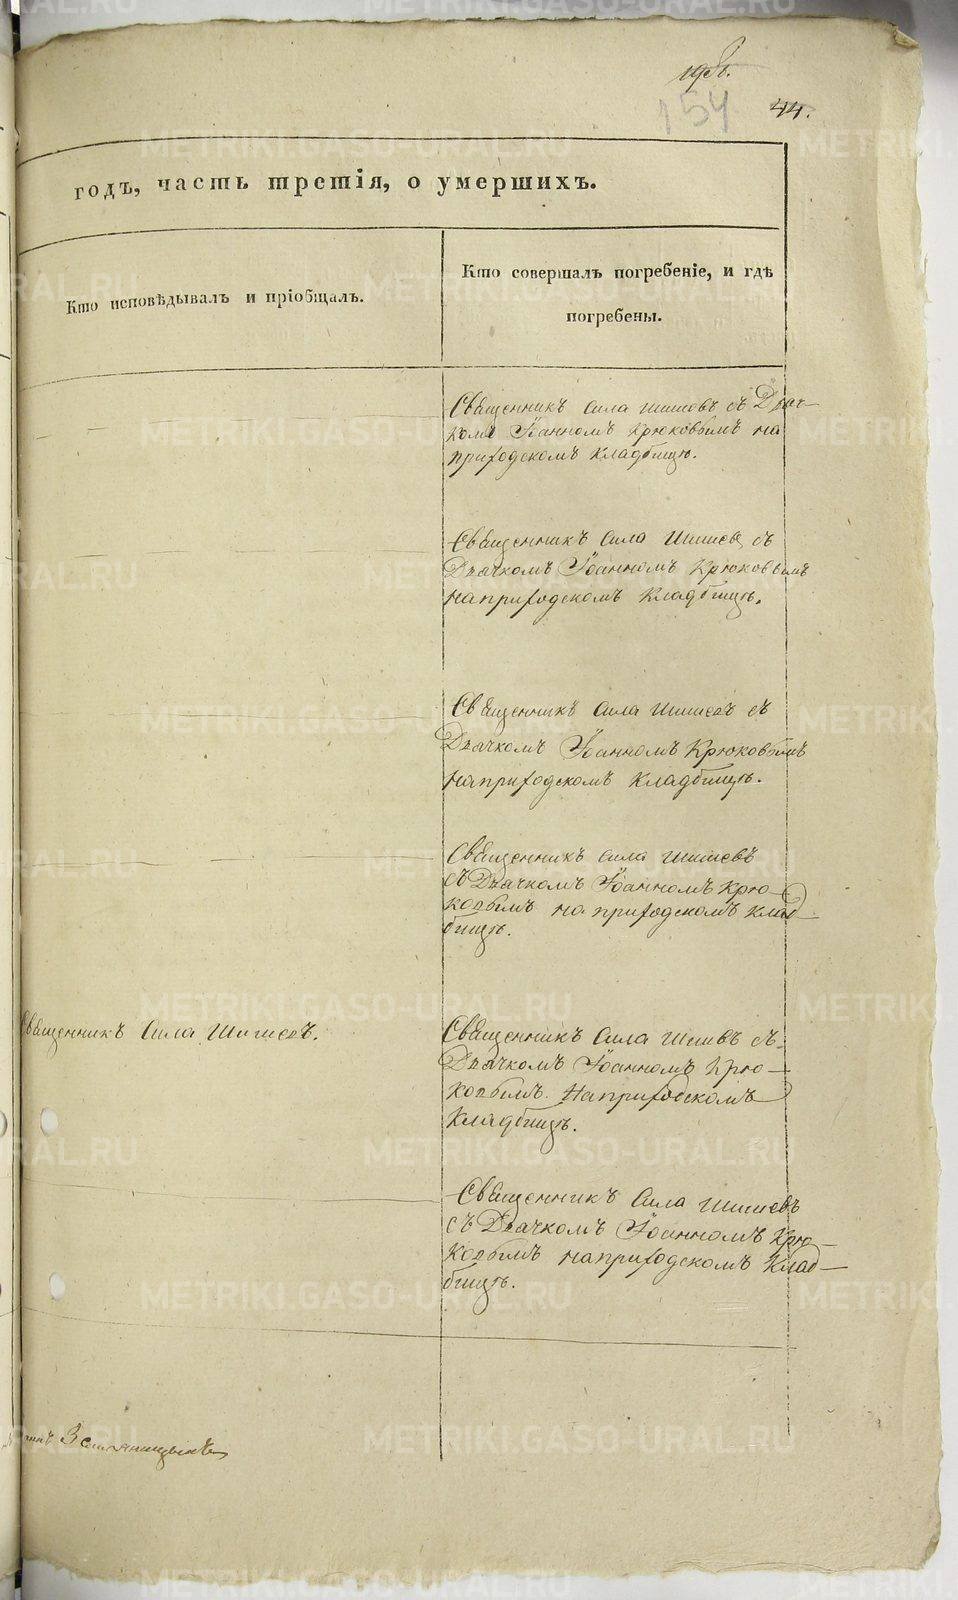 154
44.
годъ, часть третія, о умершихъ.
Кто исповѣдывалъ и пріобщалъ.
Кто совершалъ погребеніе, и гдѣ
погребены.
Священникъ Сила Шишовъ съ Дьяч-
комъ Іоанномъ Крюковымъ на
приходскомъ кладбищѣ.
Священникъ Сила Шишевъ съ
Дьячкомъ Іоанномъ Крюковымъ
на приходскомъ кладбищѣ.
Священникъ Сила Шишевъ съ
Дьячкомъ Іоанномъ Крюковымъ
на приходскомъ кладбищѣ.
Священникъ Сила Шишевъ
съ Дьячкомъ Іоанномъ Крю-
ковымъ на приходскомъ клад-
бищѣ.
Священникъ Сила Шишевъ.
Священникъ Сила Шишвъ съ
Дьячкомъ Іоанномъ Крю-
ковымъ на приходскомъ
кладбищѣ.
Священникъ Сила Шишевъ
съ Дьячкомъ Іоанномъ Крю-
ковымъ на приходскомъ клад-
бищѣ.
METRIKI.GASO-URAL.RU